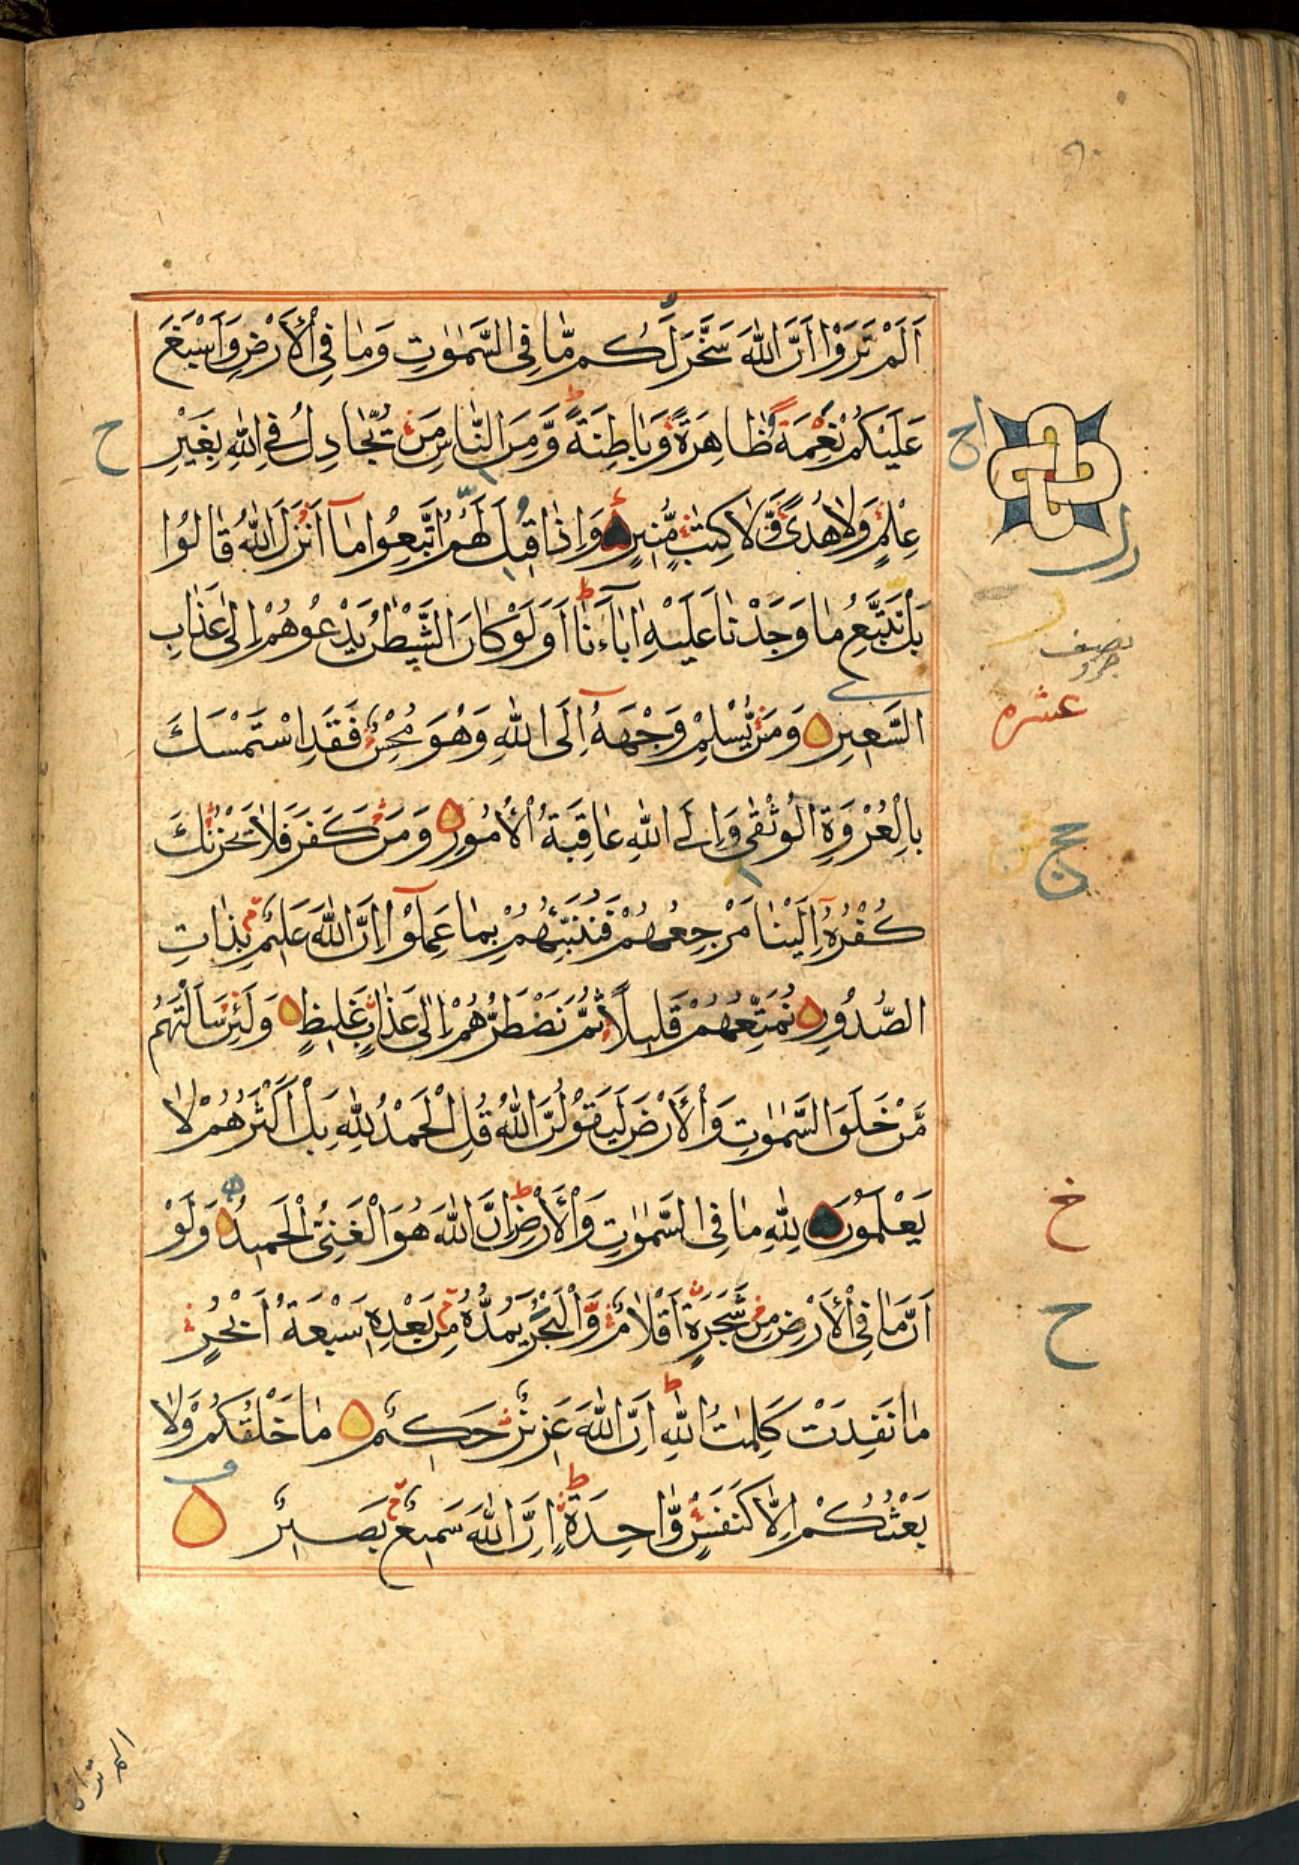 اَلَمْ تَرَوْا اَنَّ اللّٰهَ سَخَّرَ لَكُم مَّا فِى السَّمٰوٰتِ وَمَا فِى الْاَرْضِ وَاَسْبَغَ
عَلَيْكُمْ نِعَمَهٗ ظَاهِرَةً وَّبَاطِنَةً وَّمِنَ النَّاسِ مَنْ يُّجَادِلُ فِى اللّٰهِ بِغَيْرِ
عِلْمٍ وَّلَا هُدًى وَّلَا كِتٰبٍ مُّنِيرٍ وَاِذَا قِيلَ لَهُمُ اتَّبِعُوا مَآ اَنْزَلَ اللّٰهُ قَالُوا
بَلْ نَتَّبِعُ مَا وَجَدْنَا عَلَيْهِ اٰبَآءَنَا اَوَلَوْ كَانَ الشَّيْطٰنُ يَدْعُوهُمْ اِلٰى عَذَابِ
السَّعِيرِ وَمَنْ يُّسْلِمْ وَجْهَهٗٓ اِلَى اللّٰهِ وَهُوَ مُحْسِنٌ فَقَدِ اسْتَمْسَكَ
بِالْعُرْوَةِ الْوُثْقٰى وَاِلَى اللّٰهِ عَاقِبَةُ الْاُمُورِ وَمَنْ كَفَرَ فَلَا يَحْزُنْكَ
كُفْرُهٗٓ اِلَيْنَا مَرْجِعُهُمْ فَنُنَبِّئُهُمْ بِمَا عَمِلُوْٓا اِنَّ اللّٰهَ عَلِيمٌ بِذَاتِ
الصُّدُورِ نُمَتِّعُهُمْ قَلِيلًا ثُمَّ نَضْطَرُّهُمْ اِلٰى عَذَابٍ غَلِيظٍ وَلَئِنْ سَاَلْتَهُمْ
مَّنْ خَلَقَ السَّمٰوٰتِ وَالْاَرْضَ لَيَقُولُنَّ اللّٰهُ قُلِ الْحَمْدُ لِلّٰهِ بَلْ اَكْثَرُهُمْ لَا
يَعْلَمُونَ لِلّٰهِ مَا فِى السَّمٰوٰتِ وَالْاَرْضِ اِنَّ اللّٰهَ هُوَ الْغَنِىُّ الْحَمِيدُ وَلَوْ
اَنَّمَا فِى الْاَرْضِ مِنْ شَجَرَةٍ اَقْلَامٌ وَّالْبَحْرُ يَمُدُّهٗ مِنْ بَعْدِهٖ سَبْعَةُ اَبْحُرٍ
مَا نَفِدَتْ كَلِمٰتُ اللّٰهِ اِنَّ اللّٰهَ عَزِيزٌ حَكِيمٌ مَا خَلْقُكُمْ وَلَا
بَعْثُكُمْ اِلَّا كَنَفْسٍ وَّاحِدَةٍ اِنَّ اللّٰهَ سَمِيعٌ بَصِيرٌ
نصف
عشره
خ
ح
ح
الم تر ان